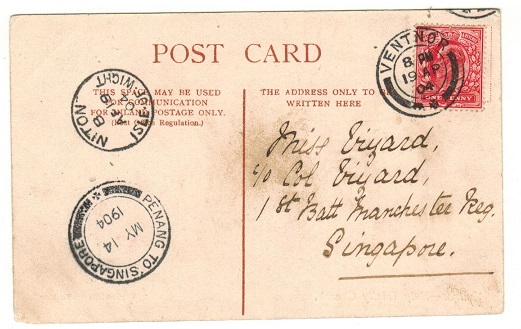 POST CARD
THIS SPACE MAY BE USED
FOR COMMUNICATION
FOR INLAND POSTAGE ONLY.
(Post Office Regulation.)
THE ADDRESS ONLY TO BE
WRITTEN HERE
VENTNOR
8. PM
19 AP
04
ONE PENNY
PENANG TO SINGAPORE
MY 14
1904
Miss
c/o Col
1st Batt Manchester Reg.
Singapore.